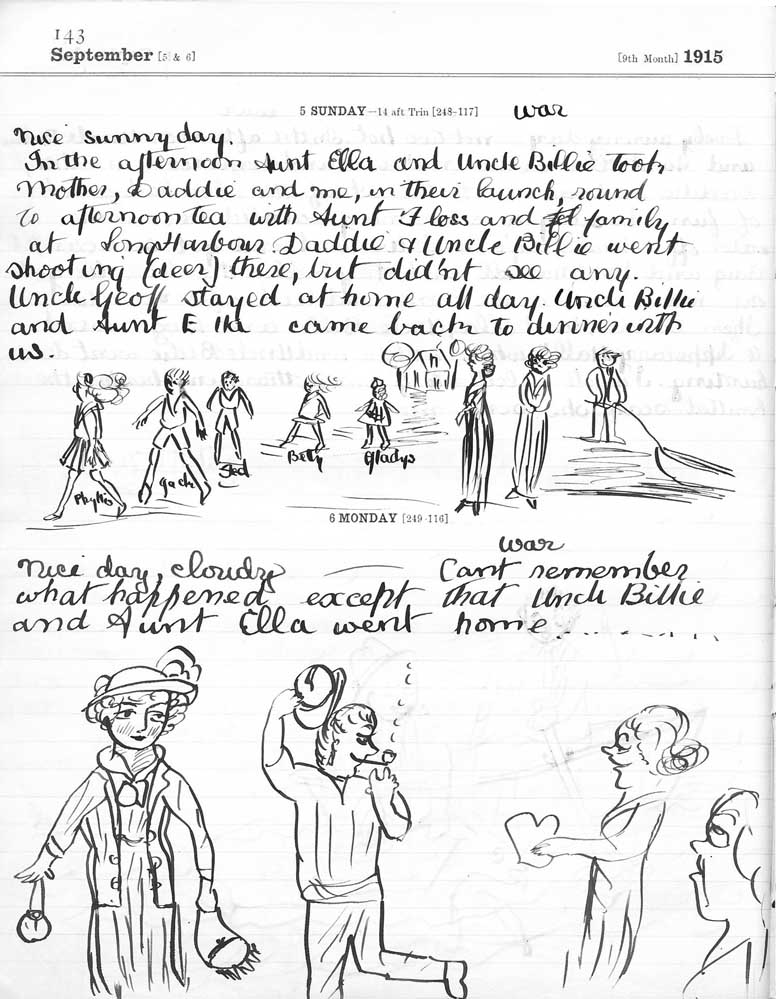 143
September [5 & 6] [9th Month] 1915
5 SUNDAY—14 aft Trin [248-117] war
Nice sunny day.
In the afternoon Aunt Ella and Uncle Billie took
Mother, Daddie and me, in their launch, round
to afternoon tea with Aunt Floss and family
at Long Harbour. Daddie & Uncle Billie went
shooting (deer) there, but did'nt see any.
Uncle Geoff stayed at home all day. Uncle Billie
and Aunt Ella came back to dinner with
us.
Phyllis Jack Ted Betty Gladys
6 MONDAY [249-116]
war
Nice day, cloudy Cant remember
what happened except that Uncle Billie
and Aunt Ella went home..........